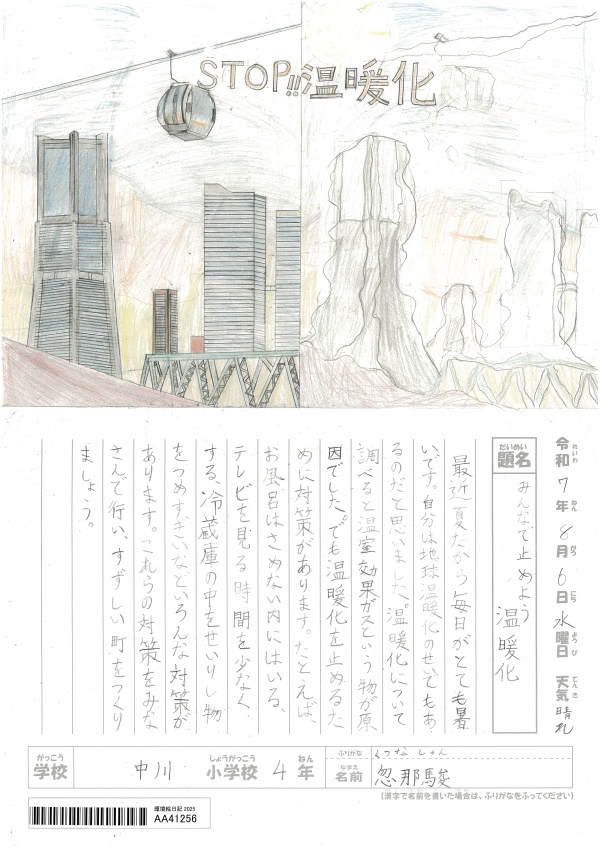 STOP!!温暖化
令和7年8月6日水曜日 天気晴れ
れいわ ねん がつ にち ようび てんき
だいめい
題名
みんなで止めよう
温暖化
最近夏だから毎日がとても暑
いです。自分は地球温暖化のせいでもあ
るのだと思いました。温暖化について
調べると温室効果ガスという物が原
因でした。でも温暖化を止めるた
めに対策があります。たとえば、
お風呂はさめない内にはいる、
テレビを見る時間を少なく
する、冷蔵庫の中をせいりし物
をつめすぎいなどいろんな対策が
あります。これらの対策をみな
さんで行い、すずしい町をつくり
ましょう。
がっこう
学校
中川
しょうがっこう ねん
小学校 4年
ふりがな
くつな しゅん
なまえ
名前
忽那駿
(漢字で名前を書いた場合は、ふりがなをふってください)
環境絵日記 2025
AA41256